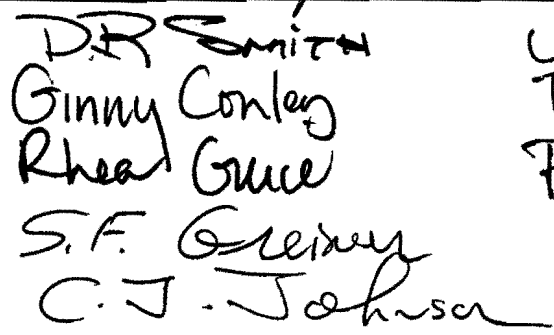 D.R Smith
Ginny Conley
Rhea
S.F. Greiner
C.J. Johnson